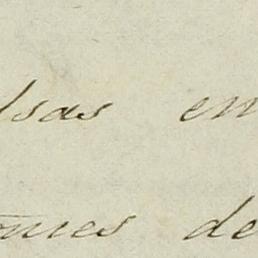 lsas en
omes de